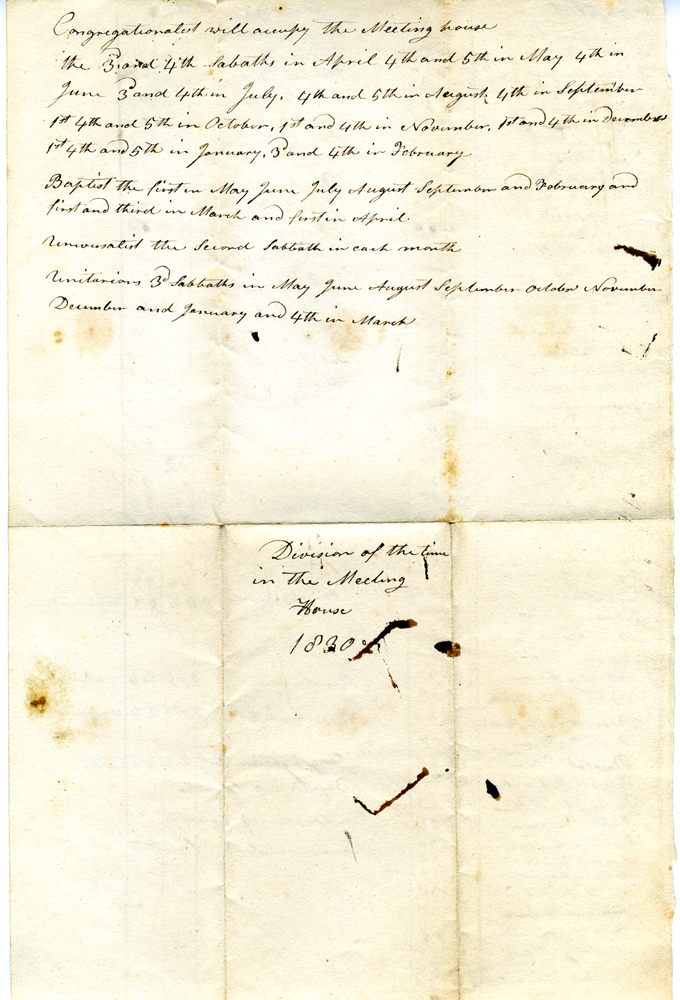 Congregationalist will occupy the Meeting house
the 3 and 4th Sabaths in April 4th and 5th in May 4th in
June 3 and 4th in July, 4th and 5th in August, 4th in September
1st 4th and 5th in October, 1st and 4th in November, 1st and 4th in December
1st 4th and 5th in January, 3 and 4th in February
Baptist the first in May June July August September and February and
first and third in March and first in April
Universalist the Second Sabbath in each month
Unitarians 3d Sabbaths in May June August September October November
December and January and 4th in March
Division of the time
in the Meeting
House
1830